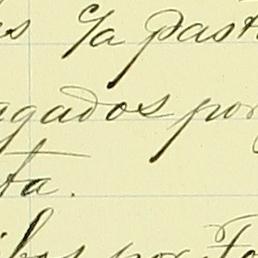 es c/a past
agados por
ta.
ibos por Fo